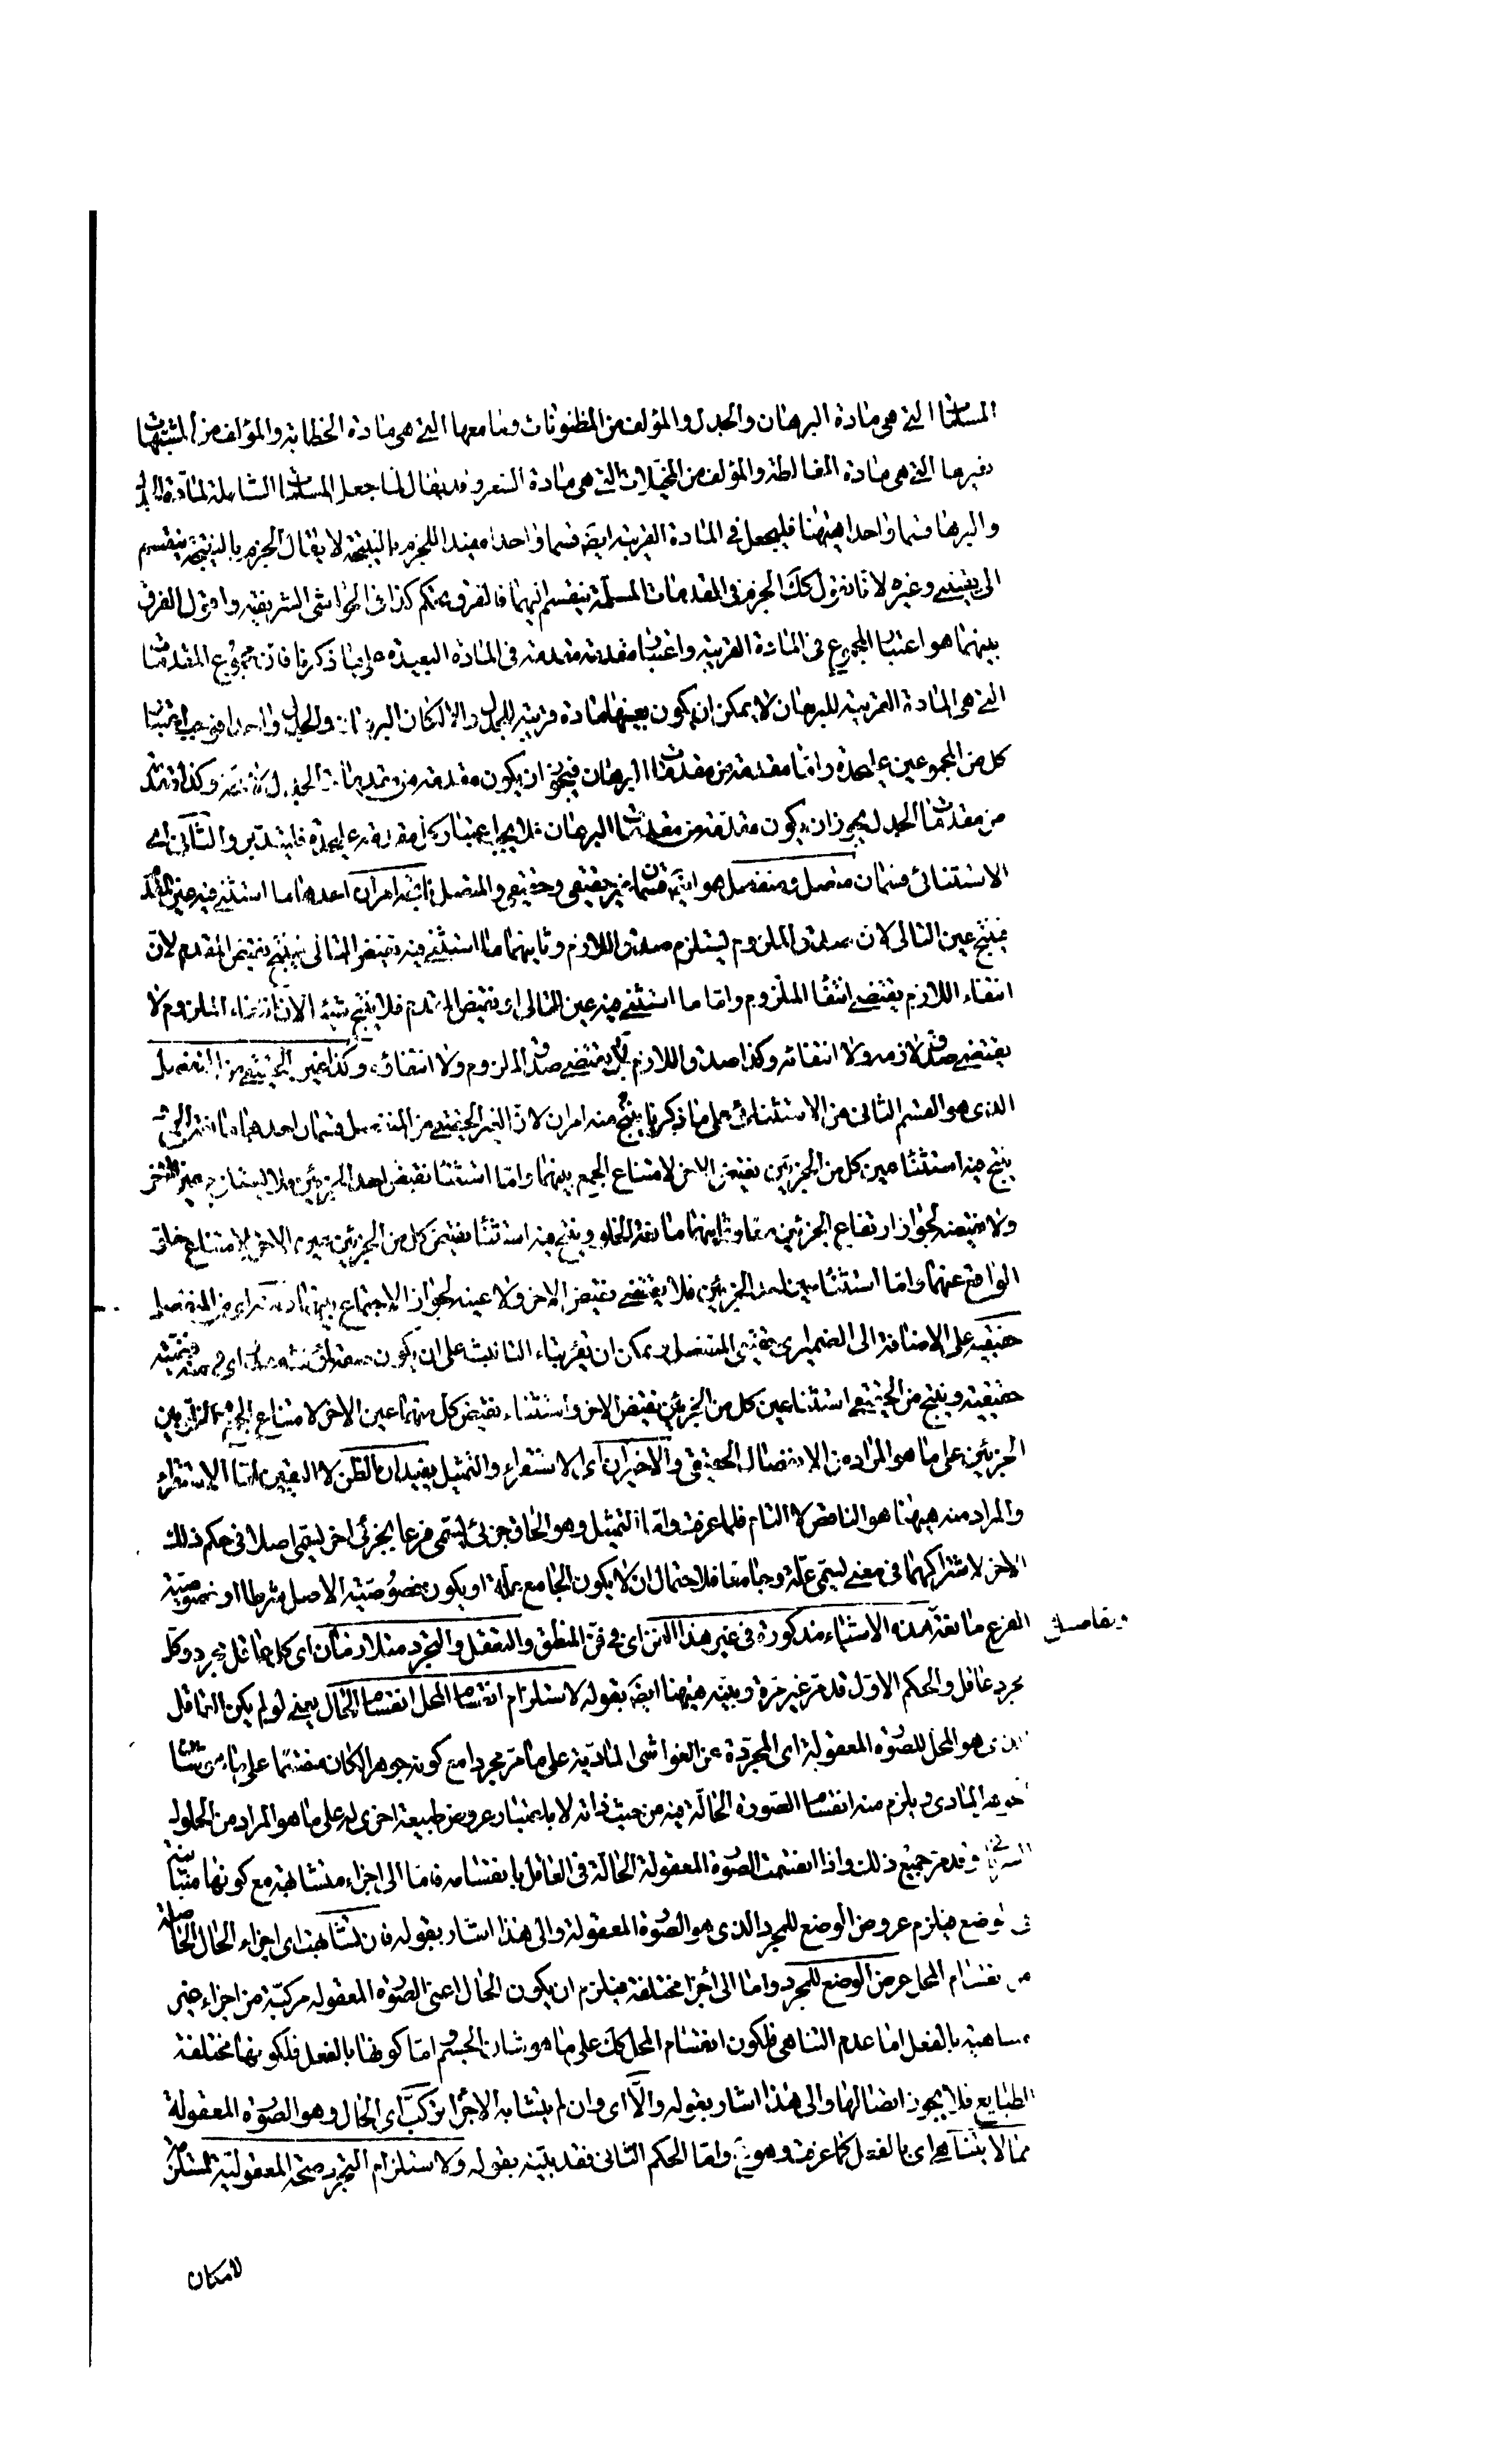 المسلمات التي هي مادة البرهان والجدل والمؤلف من المظنونات وما معها التي هي مادة الخطابة والمؤلف من المشبهات
وغيرها التي هي مادة المغالطة والمؤلف من المخيلات التي هي مادة الشعر وقد يقال لما جعل المسلمات الشاملة لمادة الجدل
والبرهان قسما واحدا ههنا فليجعل في المادة القريبة ايضا قسما واحدا مفيدا للجزم بالنتيجة لا يقال الجزم بالنتيجة ينقسم
الى يقيني وغيره لانا نقول كك الجزم في المقدمات المسلمة ينقسم اليهما فالفرق تحكم كذا في الحواشي الشريفة واقول الفرق
بينهما هو اعتبار المجموع في المادة القريبة واعتبار مقدمة مقدمة في المادة البعيدة على ما ذكرنا فان مجموع المقدمات
التي هي المادة القريبة للبرهان لا يمكن ان يكون بعينها مادة قريبة للجدل والا لكان البرهان والجدل واحدا فوجب اعتبار
كل من المجموعين عليحدة واما مقدمة من مقدمات البرهان فيجوز ان يكون مقدمة من مقدمات الجدل وكذا مقدمة
من مقدمات الجدل يجوز ان يكون مقدمة من مقدمات البرهان فلا يجب اعتبار كل مقدمة عليحدة فليتدبر والثاني اي
الاستثنائي قسمان متصل ومنفصل هو ايضا قسمان غير حقيقي وحقيقي والمتصل ناتجه امران احدهما ما استثني فيه عين المقدم
فينتج عين التالي لان صدق الملزوم يستلزم صدق اللازم وثانيهما ما استثني فيه نقيض التالي فينتج نقيض المقدم لان
انتفاء اللازم يقتضي انتفاء الملزوم واما ما استثني فيه عين التالي او نقيض المقدم فلا ينتج شيئا لان انتفاء الملزوم لا
يقتضي صدق لازمه ولا انتفائه وكذا صدق اللازم لا يقتضي صدق الملزوم ولا انتفاؤه وكذا غير الحقيقي من المنفصل
الذي هو القسم الثاني من الاستثنائي على ما ذكرنا ينتج منه امران لان الغير الحقيقي من المنفصل قسمان احدهما مانعة الجمع
ينتج فيه استثناء عين كل من الجزئين نقيض الاخر لامتناع الجمع بينهما واما استثناء نقيض احد الجزئين فلا ينتج عين الاخر
ولا نقيضه لجواز ارتفاع الجزئين معا وثانيهما مانعة الخلو وينتج فيه استثناء نقيض كل من الجزئين عين الاخر لامتناع خلو
الواقع عنهما واما استثناء عين احد الجزئين فلا يقتضي نقيض الاخر ولا عينه لجواز الاجتماع بينهما من المنفصل
حقيقيه على الاضافة الى الضمير اي حقيقي المنفصل ويمكن ان يقرء بتاء التانيث على ان يكون
حقيقية وينتج من الحقيقي استثناء عين كل من الجزئين نقيض الاخر واستثناء نقيض كل منهما عين الاخر لامتناع الجمع بين
الجزئين على ما هو المراد من الانفصال الحقيقي والاخيران اي الاستقراء والتمثيل يفيدان الظن لا اليقين اما الاستقراء
والمراد منه ههنا هو الناقص لا التام فلما عرفت واما التمثيل وهو الحاق جزئي يسمى فرعا بجزئي اخر يسمى اصلا في حكم ذلك
الاخر لاشتراكهما في معنى يسمى علة وجامعا فلاحتمال ان لا يكون الجامع علة او يكون خصوصية الاصل شرطا او خصوصية
الفرع مانعة وتفاصيل هذه الاشياء مذكورة في غير هذا الفن اي في فن المنطق والتعقل والتجرد متلازمان اي كل عاقل مجرد وكل
مجرد عاقل والحكم الاول قد مر غير مرة وبينه ههنا ايضا بقوله لاستلزام انقسام المحل انقسام الحال يعني لو لم يكن العاقل
الذي هو المحل للصورة المعقولة اي المجردة عن الغواشي المادية على ما مر مجردا مع كونه جوهرا لكان منقسما على ما هو شان
الجوهر المادي ويلزم منه انقسام الصورة الحالة فيه من حيث ذاته لا باعتبار عروض طبيعة اخرى له على ما هو المراد من الحلول
السرياني وقد مر جميع ذلك واذا انقسمت الصورة المعقولة الحالة في العاقل بانقسامه فاما الى اجزاء متشابهة مع كونها متباينة
في الوضع فيلزم عروض الوضع للمجرد الذي هو الصورة المعقولة والى هذا اشار بقوله فان تشابهت اي اجزاء الحال الحاصلة
من انقسام المحل عرض الوضع للمجرد واما الى أجزاء مختلفة فيلزم ان يكون الحال اعني الصورة المعقولة مركبة من اجزاء غير
متناهية بالفعل اما عدم التناهي فلكون انقسام المحل كك على ما هو شان الجسم واما كونها بالفعل فلكونها مختلفة
الطبايع فلا يجوز اتصالها والى هذا اشار بقوله والا اي وان لم يتشابه الاجزاء تركب اي الحال وهو الصورة المعقولة
مما لا يتناهى اي بالفعل كما عرفت وهو مح واما الحكم الثاني فقد بينه بقوله ولاستلزام التجرد صحة المعقولية المستلزمة
لامكان